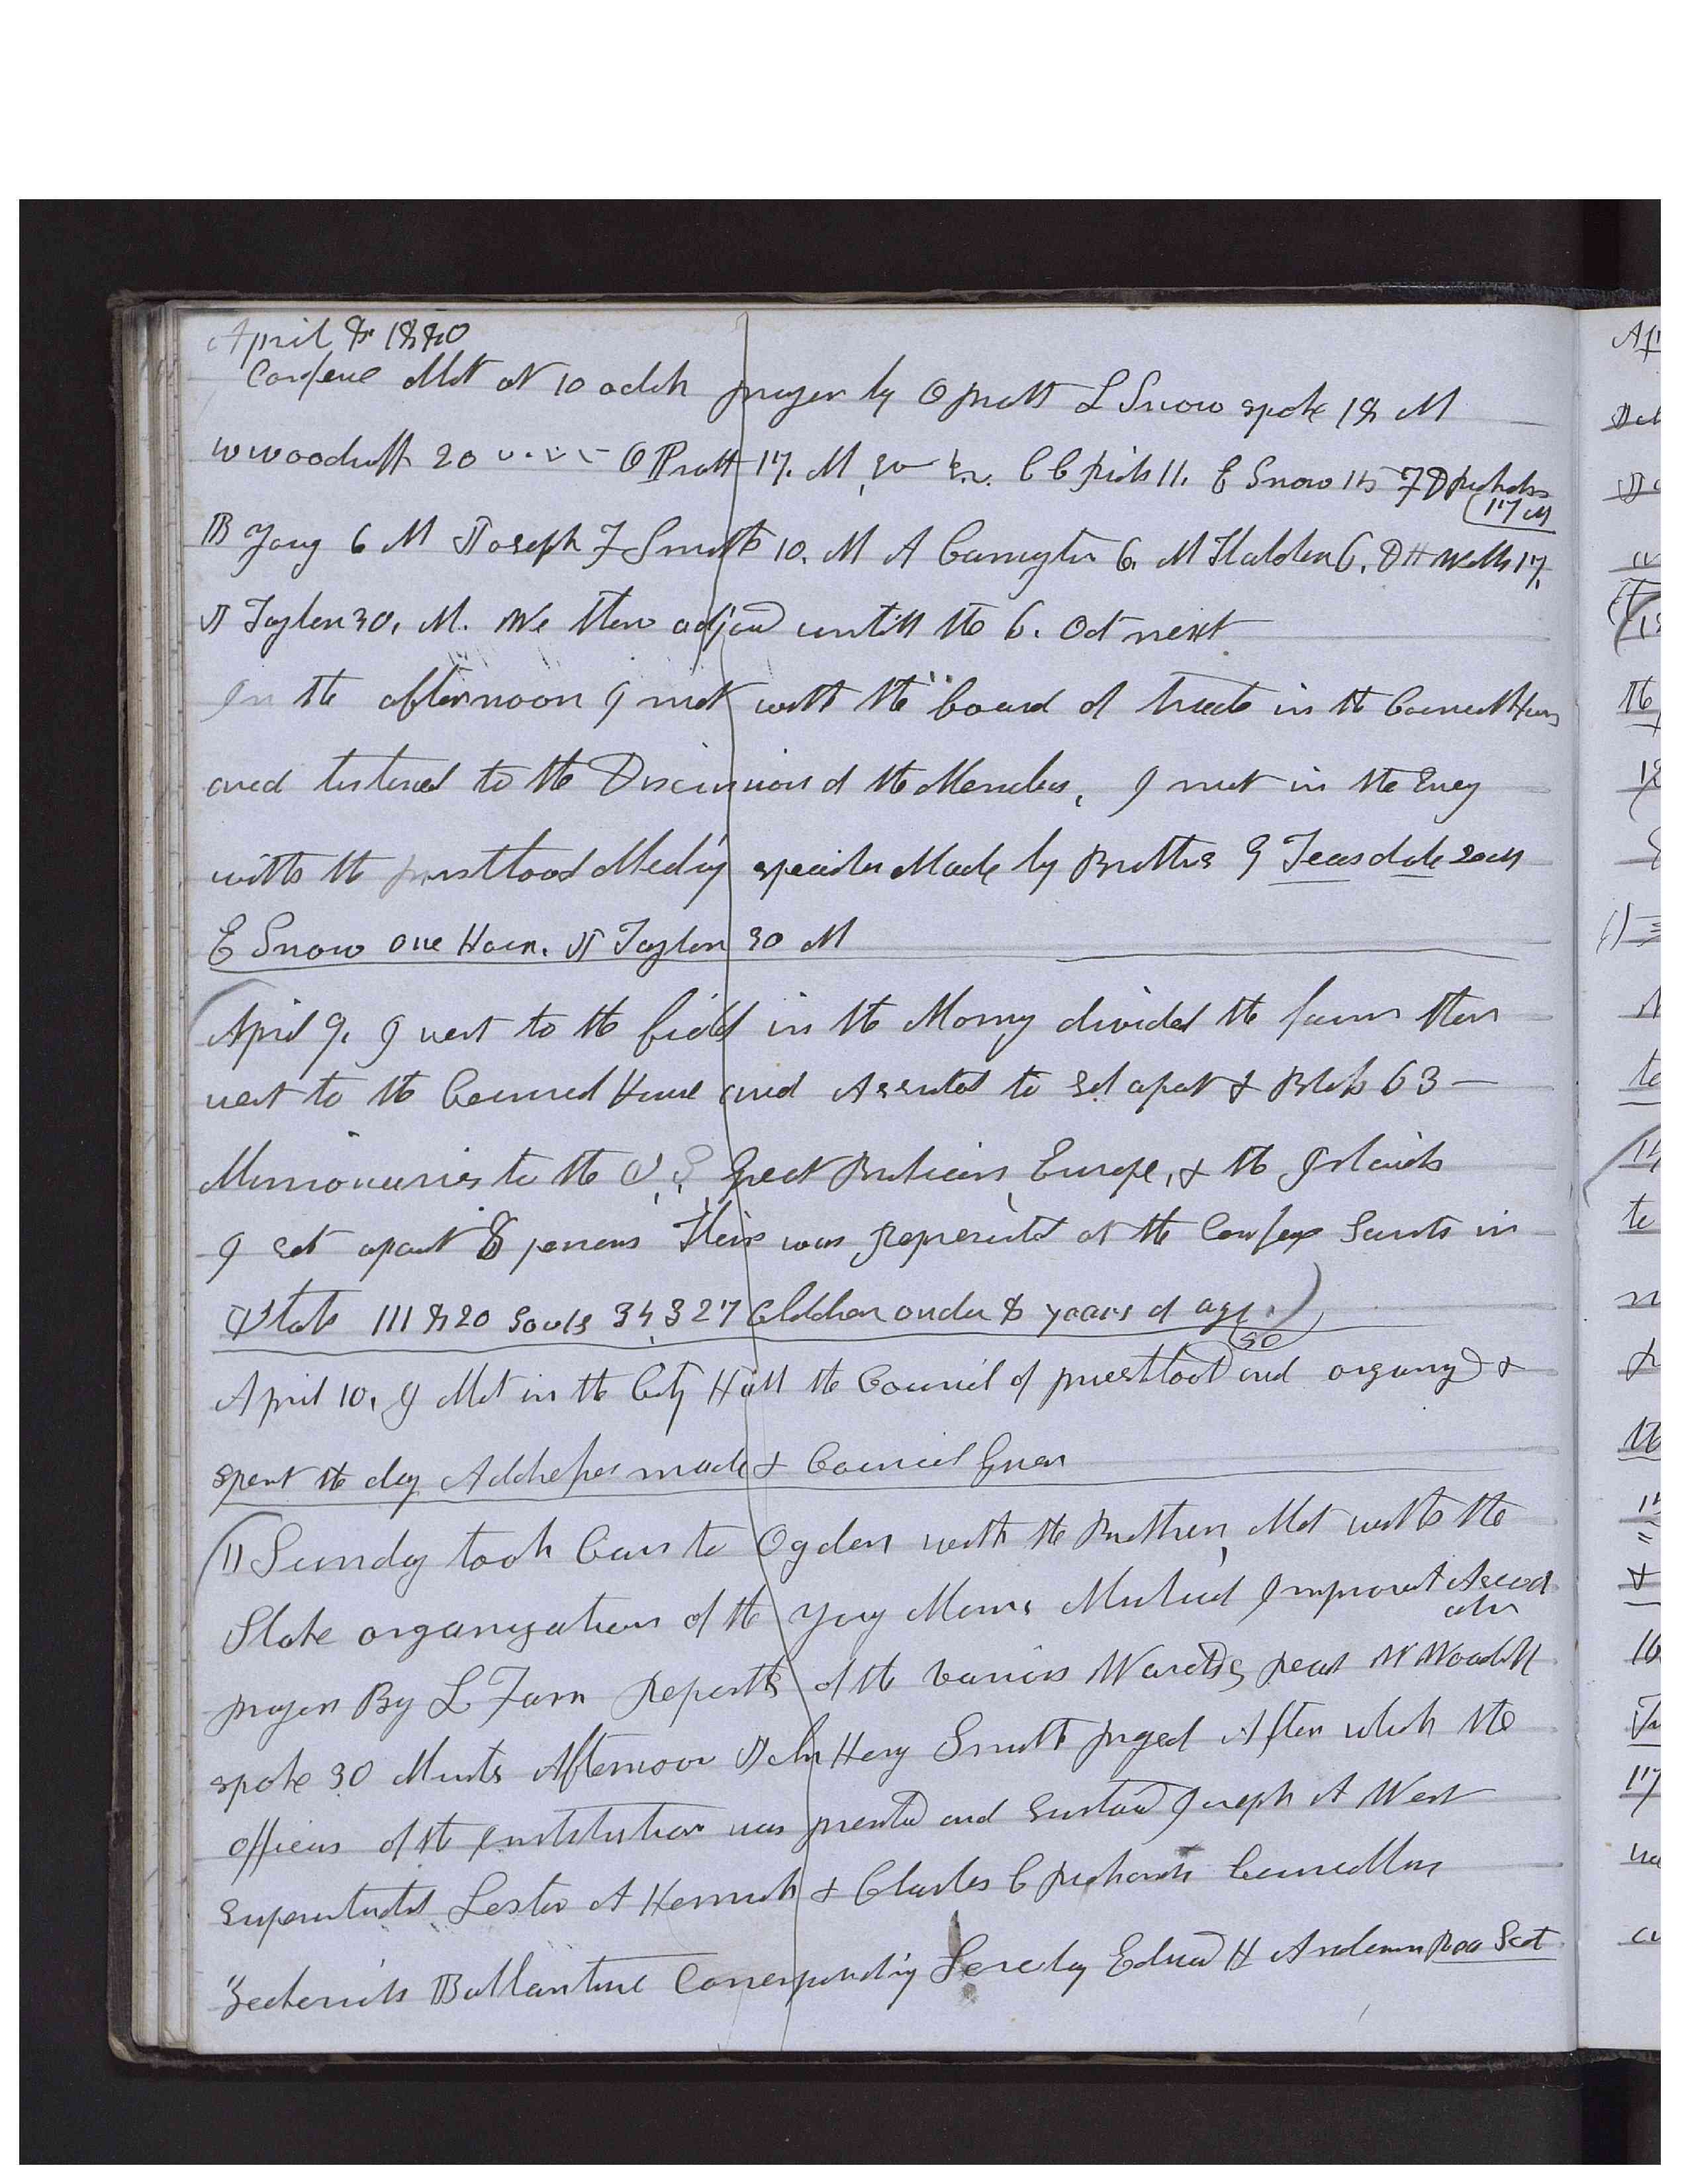 April 8 1880
Confene Met at 10 oclok prayer by O pratt L Snow spoke 18 M
W woodruff 20 O Pratt 17. M, C C Rich 11. E Snow 15 F D Richards
17 M
B Yong 6 M Joseph F Smith 10. M A Carrington 6. M Thatcher 6. D H Wells 17.
J Taylor 30, M. We then adjod untill the 6. Oct next
In the afternoon I met with the board of trade in the Councel Hous
and listened to the Discussion of the Members, I met in the Eveg
with the priesthood Meetig speeches Made by Brothers G Teasdale 20 M
E Snow one Hour. J Taylor 30 M
April 9, I went to the field in the Mornig divided the farm then
went to the Council House and Assisted to set apart & Bless 63 -
Missionaries to the U, S, Great Britian, Europe, & the Islands
I set apart 8 persons Their was Represented at the Confere Saints in
Utah 111820 Souls 34,327 Children under 8 years of age.)
April 10, I Met in the City Hall the Council of priesthood and organizd &
50
spent the day Addresses made & Council Given
11 Sunday took Cars to Ogden with the Brethren, Met with the
Stake organization of the Yong Mens Mutual Improvet Assoc
ation
prayer By L Farr Reports of the various Wards, read W Woodruff
spoke 30 Minuts Afternoon John Henry Smith prayed After which the
officers of the institution was presentd and sustaind Joseph A West
Superintendet Lester A Herrick & Charles C Richards Councellors
Frederick Ballantine Corresponding Secretay Edward H Anderson Rec Sect
Ap